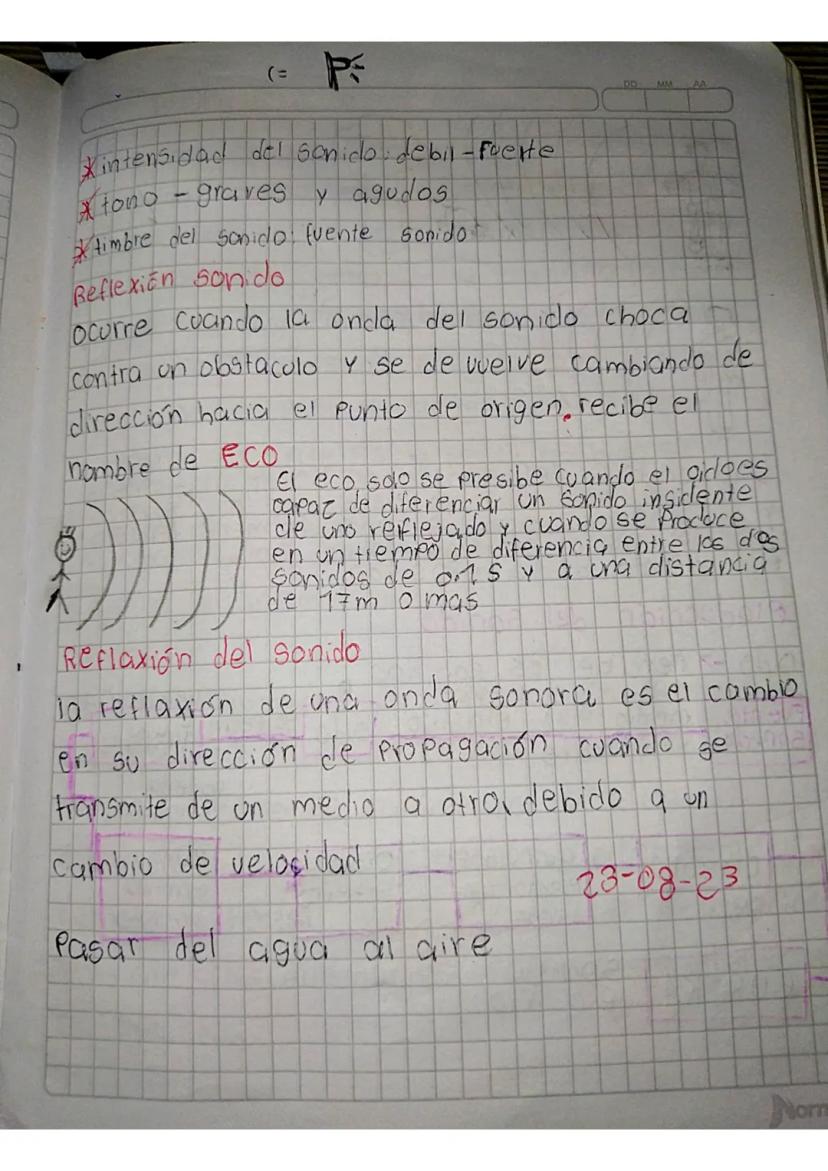 (=
DD MM AA
*intensidad del sonido: debil-fuerte
*tono - graves y agudos
*timbre del sonido: fuente sonido
Reflexión sonido
ocurre cuando la onda del sonido choca
contra un obstaculo y se de vuelve cambiando de
dirección hacia el punto de origen. recibe el
nombre de ECO
El eco solo se presibe cuando el oidoes
capaz de diferenciar un sonido insidente
de uno reflejado y cuando se produce
en un tiempo de diferencia entre los dos
sonidos de 0.1 s y a una distancia
de 17m o mas
Reflaxión del sonido
la reflaxión de una onda sonora es el cambio
en su dirección de propagación cuando se
transmite de un medio a otro, debido a un
cambio de velosidad
23-08-23
Pasar del agua al aire
Norm